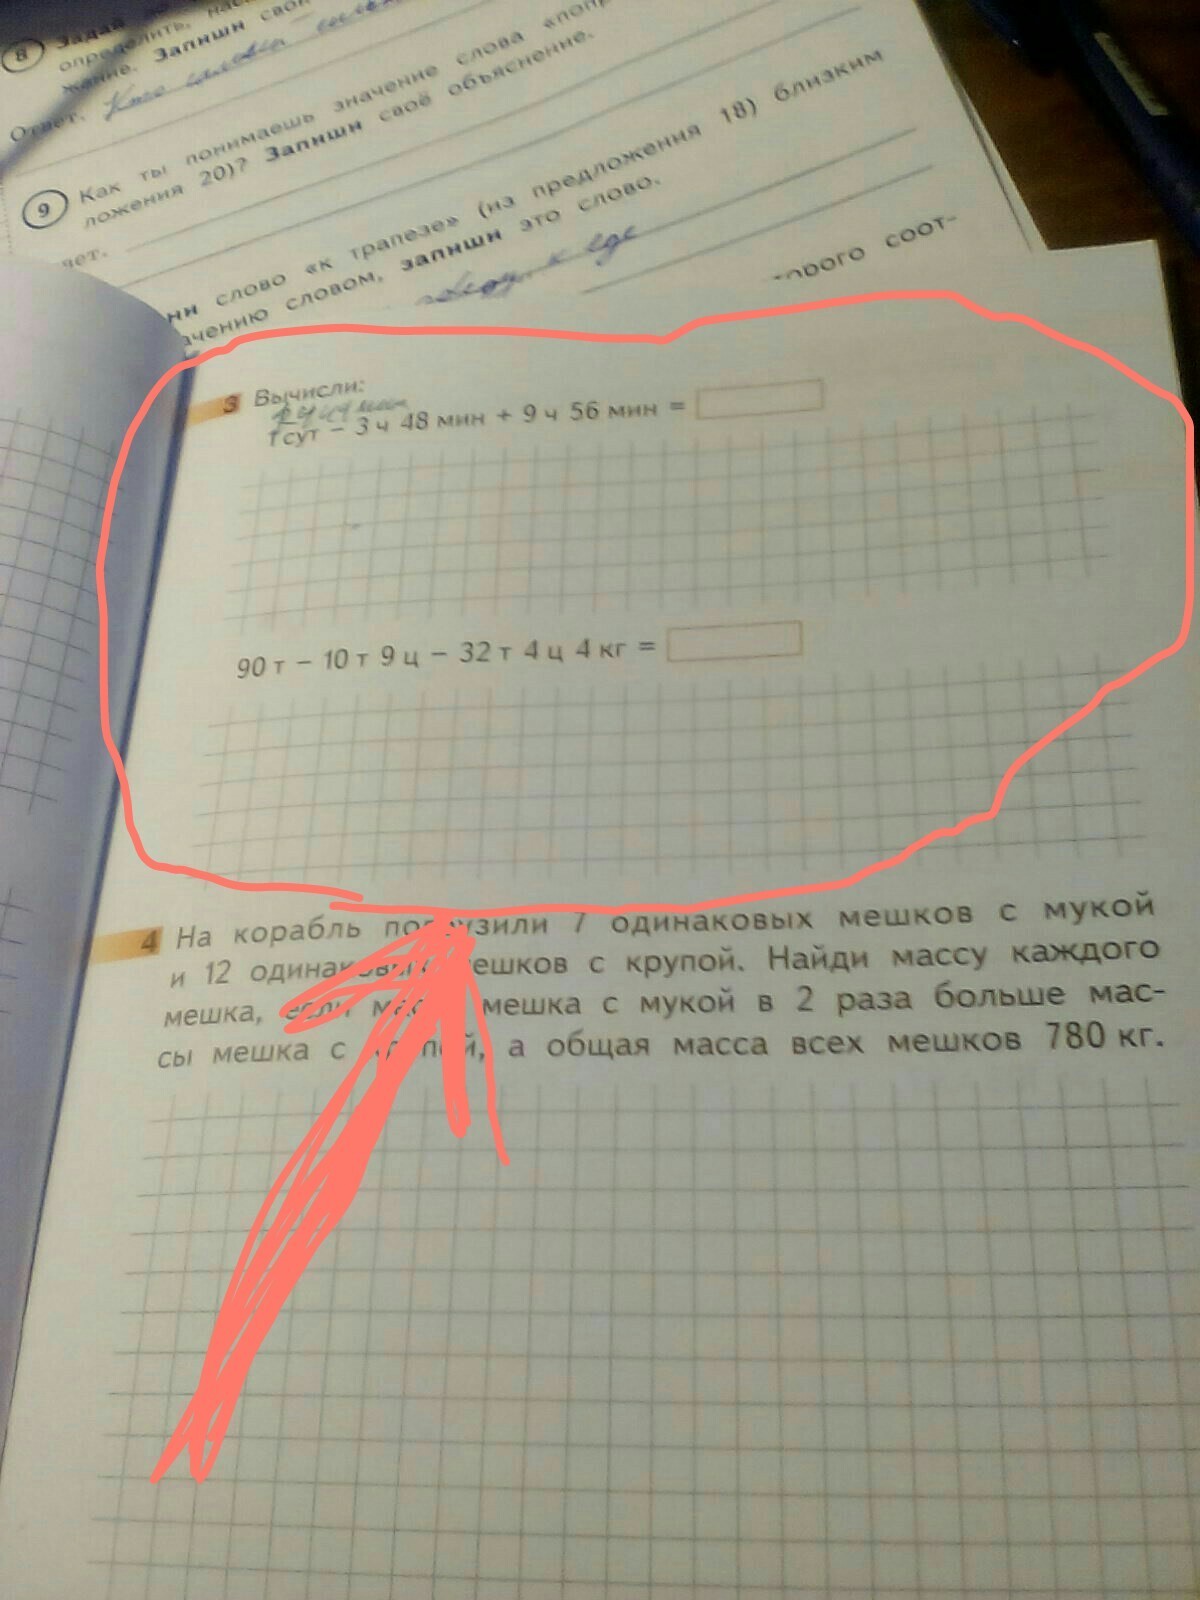 8 Задай
определить, нас
жание. Запиши сво
Ответ.
9 Как ты понимаешь значение слова «поп
ложения 20)? Запиши своё объяснение.
вет.
ни слово «к трапезе» (из предложения 18) близким
ачению словом, запиши это слово.
к еде
орого соот-
3 Вычисли:
1 сут − 3 ч 48 мин + 9 ч 56 мин =
90 т − 10 т 9 ц − 32 т 4 ц 4 кг =
4 На корабль погрузили 7 одинаковых мешков с мукой
и 12 одинаковых мешков с крупой. Найди массу каждого
мешка, если масса мешка с мукой в 2 раза больше мас-
сы мешка с крупой, а общая масса всех мешков 780 кг.